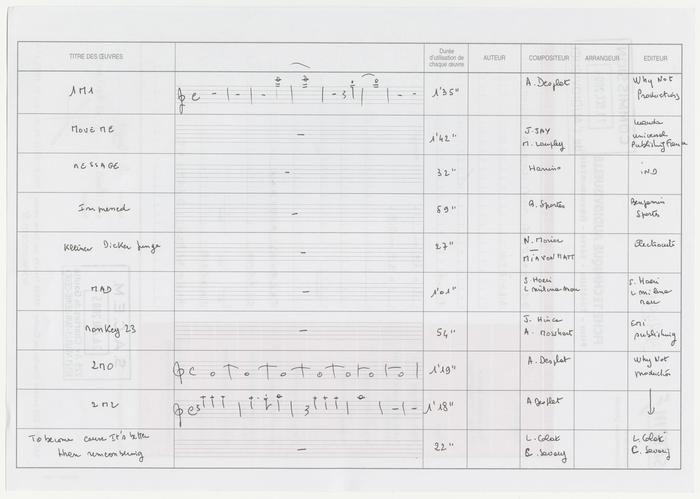 TITRE DES ŒUVRES
Durée d'utilisation de chaque œuvre
AUTEUR
COMPOSITEUR
ARRANGEUR
EDITEUR
1M1
1'35"
A. Desplat
Why Not
Productions
MOVE ME
1'42"
J. JAY
universal
Publishing France
MESSAGE
32"
IND
59"
Sportes
Benjamin
Sportes
Kleiner Dicker Junge
27"
N. Morier
MIA VON MATT
MAD
1'01"
S. Hoeri
S. Hoeri
Monkey 23
54"
J. Hince
A. Mosshart
Emi
publishing
2M0
1'19"
A. Desplat
Why Not
production
2M2
1'18"
A Desplat
To become cause It's better
then remembering
22"
L. Colak
C. Savary
L. Colak
C. Savary